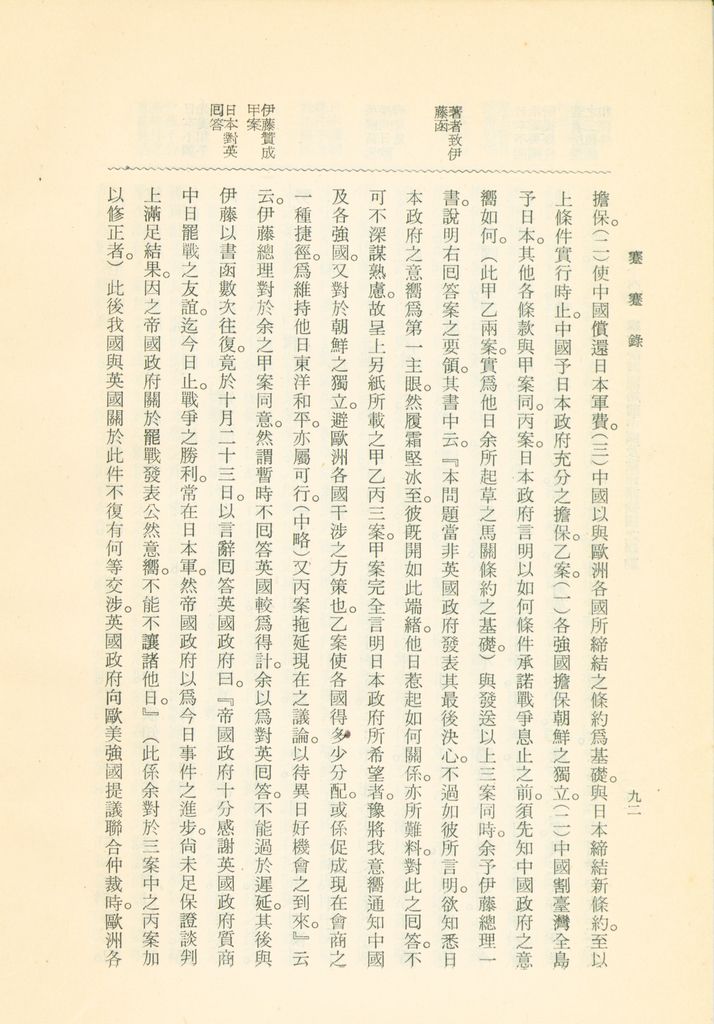 蹇蹇錄
九二
著者致伊
藤函
伊藤贊成
甲案
日本對英
囘答
擔保。(二)使中國償還日本軍費。(三)中國以與歐洲各國所締結之條約爲基礎。與日本締結新條約。至以
上條件實行時止。中國予日本政府充分之擔保。乙案。(一)各強國擔保朝鮮之獨立。(二)中國割臺灣全島
予日本。其他各條款與甲案同。丙案。日本政府言明以如何條件承諾戰爭息止之前。須先知中國政府之意
嚮如何。(此甲乙兩案。實爲他日余所起草之馬關條約之基礎。)與發送以上三案同時。余予伊藤總理一
書。說明右囘答案之要領。其書中云。『本問題當非英國政府發表其最後決心。不過如彼所言明。欲知悉日
本政府之意嚮爲第一主眼。然履霜堅冰至。彼旣開如此端緒。他日惹起如何關係。亦所難料。對此之囘答。不
可不深謀熟慮。故呈上另紙所載之甲乙丙三案。甲案完全言明日本政府所希望者。豫將我意嚮通知中國
及各強國。又對於朝鮮之獨立。避歐洲各國干涉之方策也。乙案使各國得多少分配。或係促成現在會商之
一種捷徑。爲維持他日東洋和平。亦屬可行。(中略)又丙案拖延現在之議論。以待異日好機會之到來。』云
云。伊藤總理對於余之甲案同意。然謂暫時不囘答英國較爲得計。余以爲對英囘答。不能過於遲延。其後與
伊藤以書函數次往復。竟於十月二十三日。以言辭囘答英國政府曰。『帝國政府十分感謝英國政府質商
中日罷戰之友誼。迄今日止。戰爭之勝利。常在日本軍。然帝國政府以爲今日事件之進步。尙未足保證談判
上滿足結果。因之帝國政府關於罷戰發表公然意嚮。不能不讓諸他日。』(此係余對於三案中之丙案加
以修正者。)此後我國與英國關於此件不復有何等交涉。英國政府向歐美強國提議聯合仲裁時。歐洲各